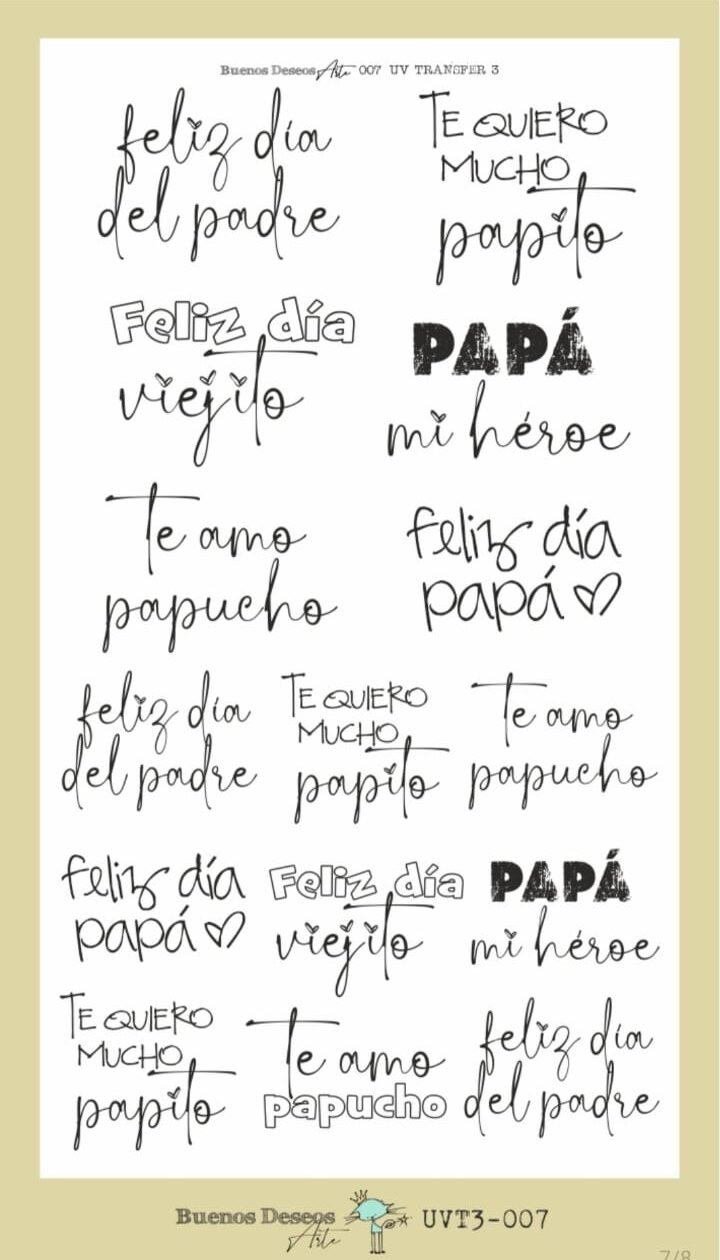 Buenos Deseos Arte 007 UV TRANSFER 3
feliz día
del padre
TE QUIERO
MUCHO
papito
Feliz día
viejito
PAPÁ
mi héroe
te amo
papucho
feliz día
papá
feliz día
del padre
TE QUIERO
MUCHO
papito
te amo
papucho
feliz día
papá
Feliz día
viejito
PAPÁ
mi héroe
TE QUIERO
MUCHO
papito
te amo
papucho
feliz día
del padre
Buenos Deseos
Arte
UVT3-007
7/8